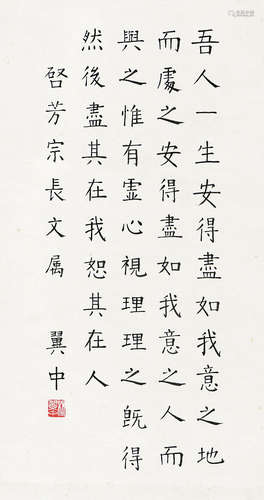 吾人一生安得盡如我意之地
而處之安得盡如我意之人而
與之惟有虛心視理理之旣得
然後盡其在我恕其在人
啓芳宗長文属 翼中